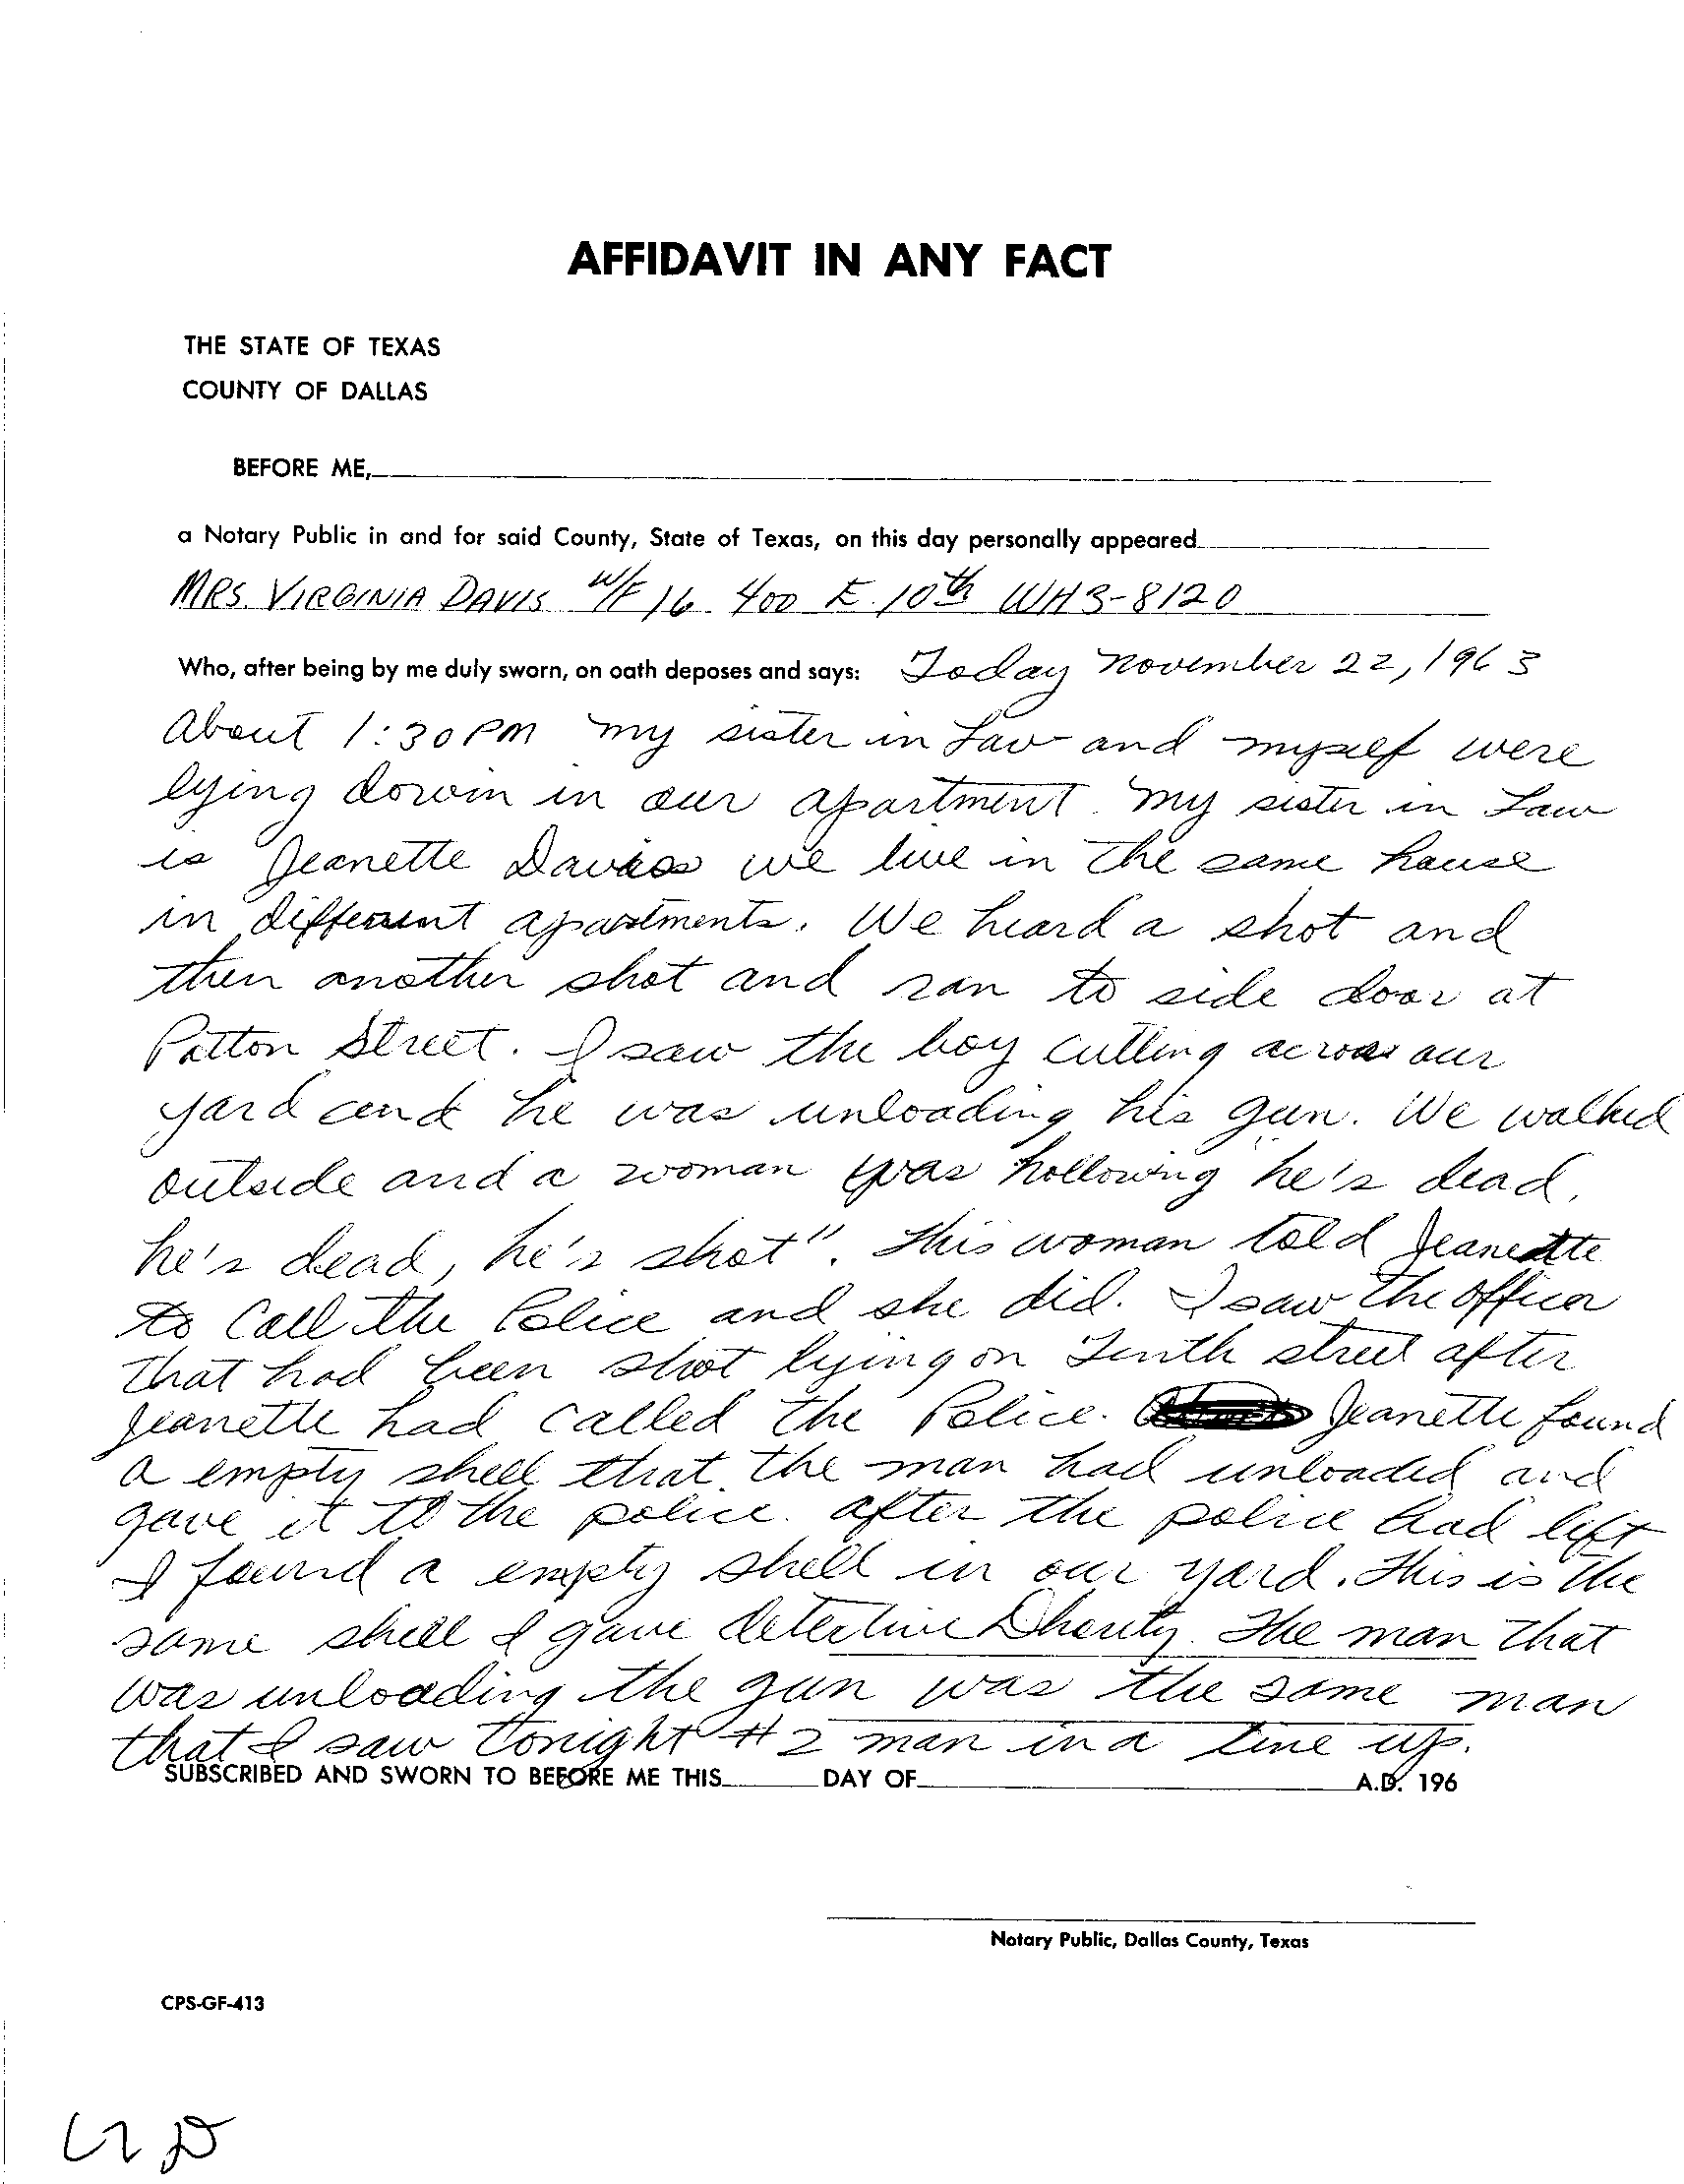 AFFIDAVIT IN ANY FACT
THE STATE OF TEXAS
COUNTY OF DALLAS
BEFORE ME,
a Notary Public in and for said County, State of Texas, on this day personally appeared
MRS. VIRGINIA DAVIS W/F 16 400 E. 10th WH3-8120
Who, after being by me duly sworn, on oath deposes and says: Today November 22, 1963
about 1:30 PM my sister in Law and myself were
lying down in our apartment. My sister in Law
is Jeanette Davis we live in the same house
in different apartments. We heard a shot and
then another shot and ran to side door at
Patton Street. I saw the boy cutting across our
yard and he was unloading his gun. We walked
outside and a woman was hollowing he's dead,
he's dead, he's shot". This woman told Jeanette
to Call the Police and she did. I saw the officer
that had been shot lying on Tenth street after
Jeanette had called the Police. Jeanette found
a empty shell that the man had unloaded and
gave it to the police. after the police had left
I found a empty shell in our yard. This is the
same shell I gave detective Dhority. The man that
was unloading the gun was the same man
that I saw tonight # 2 man in a line up.
SUBSCRIBED AND SWORN TO BEFORE ME THIS DAY OF A.D. 196
Notary Public, Dallas County, Texas
CPS-GF-413